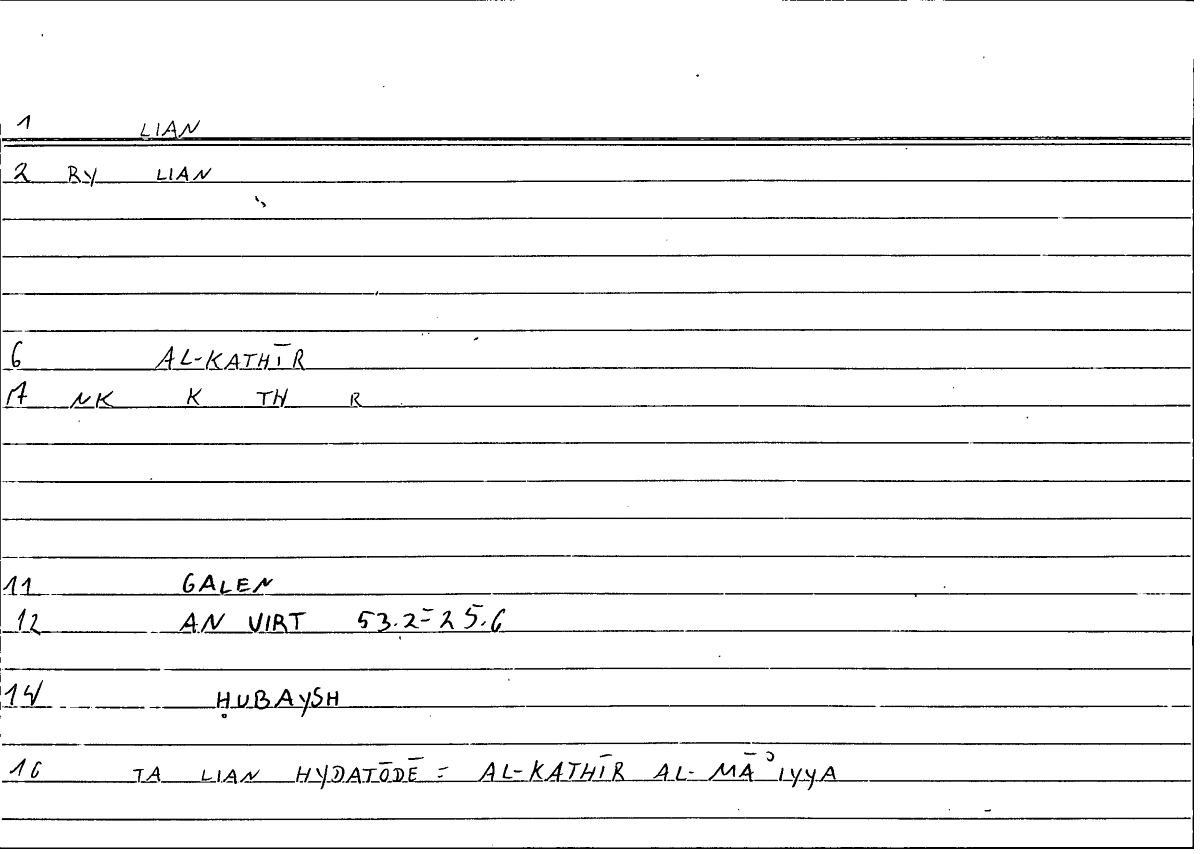 1 LIAN
2 RY LIAN
6 AL-KATHĪR
17 NK K TH R
11 GALEN
12 AN VIRT 53.2=25.6
14 ḤUBAYSH
16 TA LIAN HYDATŌDĒ = AL-KATHĪR AL-MĀʾIYYA